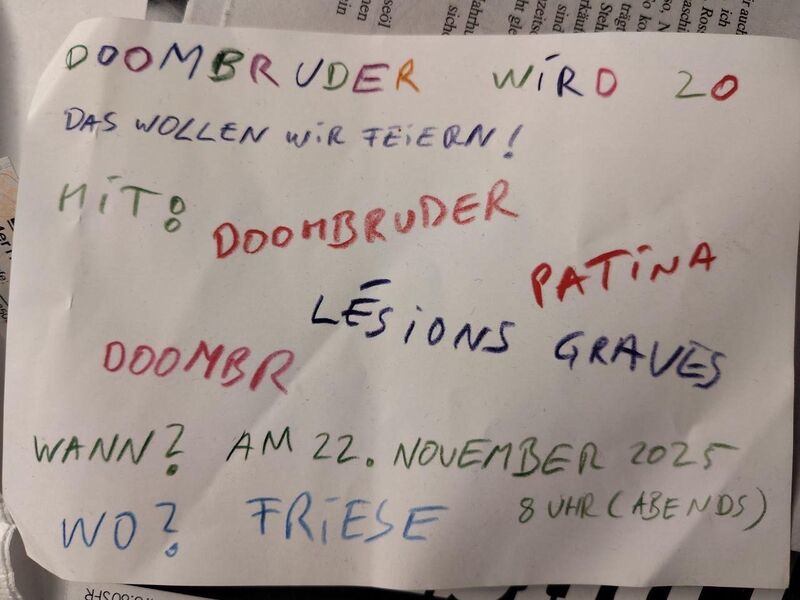 DOOMBRUDER WIRD 20
DAS WOLLEN WIR FEIERN!
MIT:
DOOMBRUDER
PATINA
LÉSIONS GRAVES
DOOMBR
WANN? AM 22. NOVEMBER 2025
8 UHR (ABENDS)
WO? FRIESE